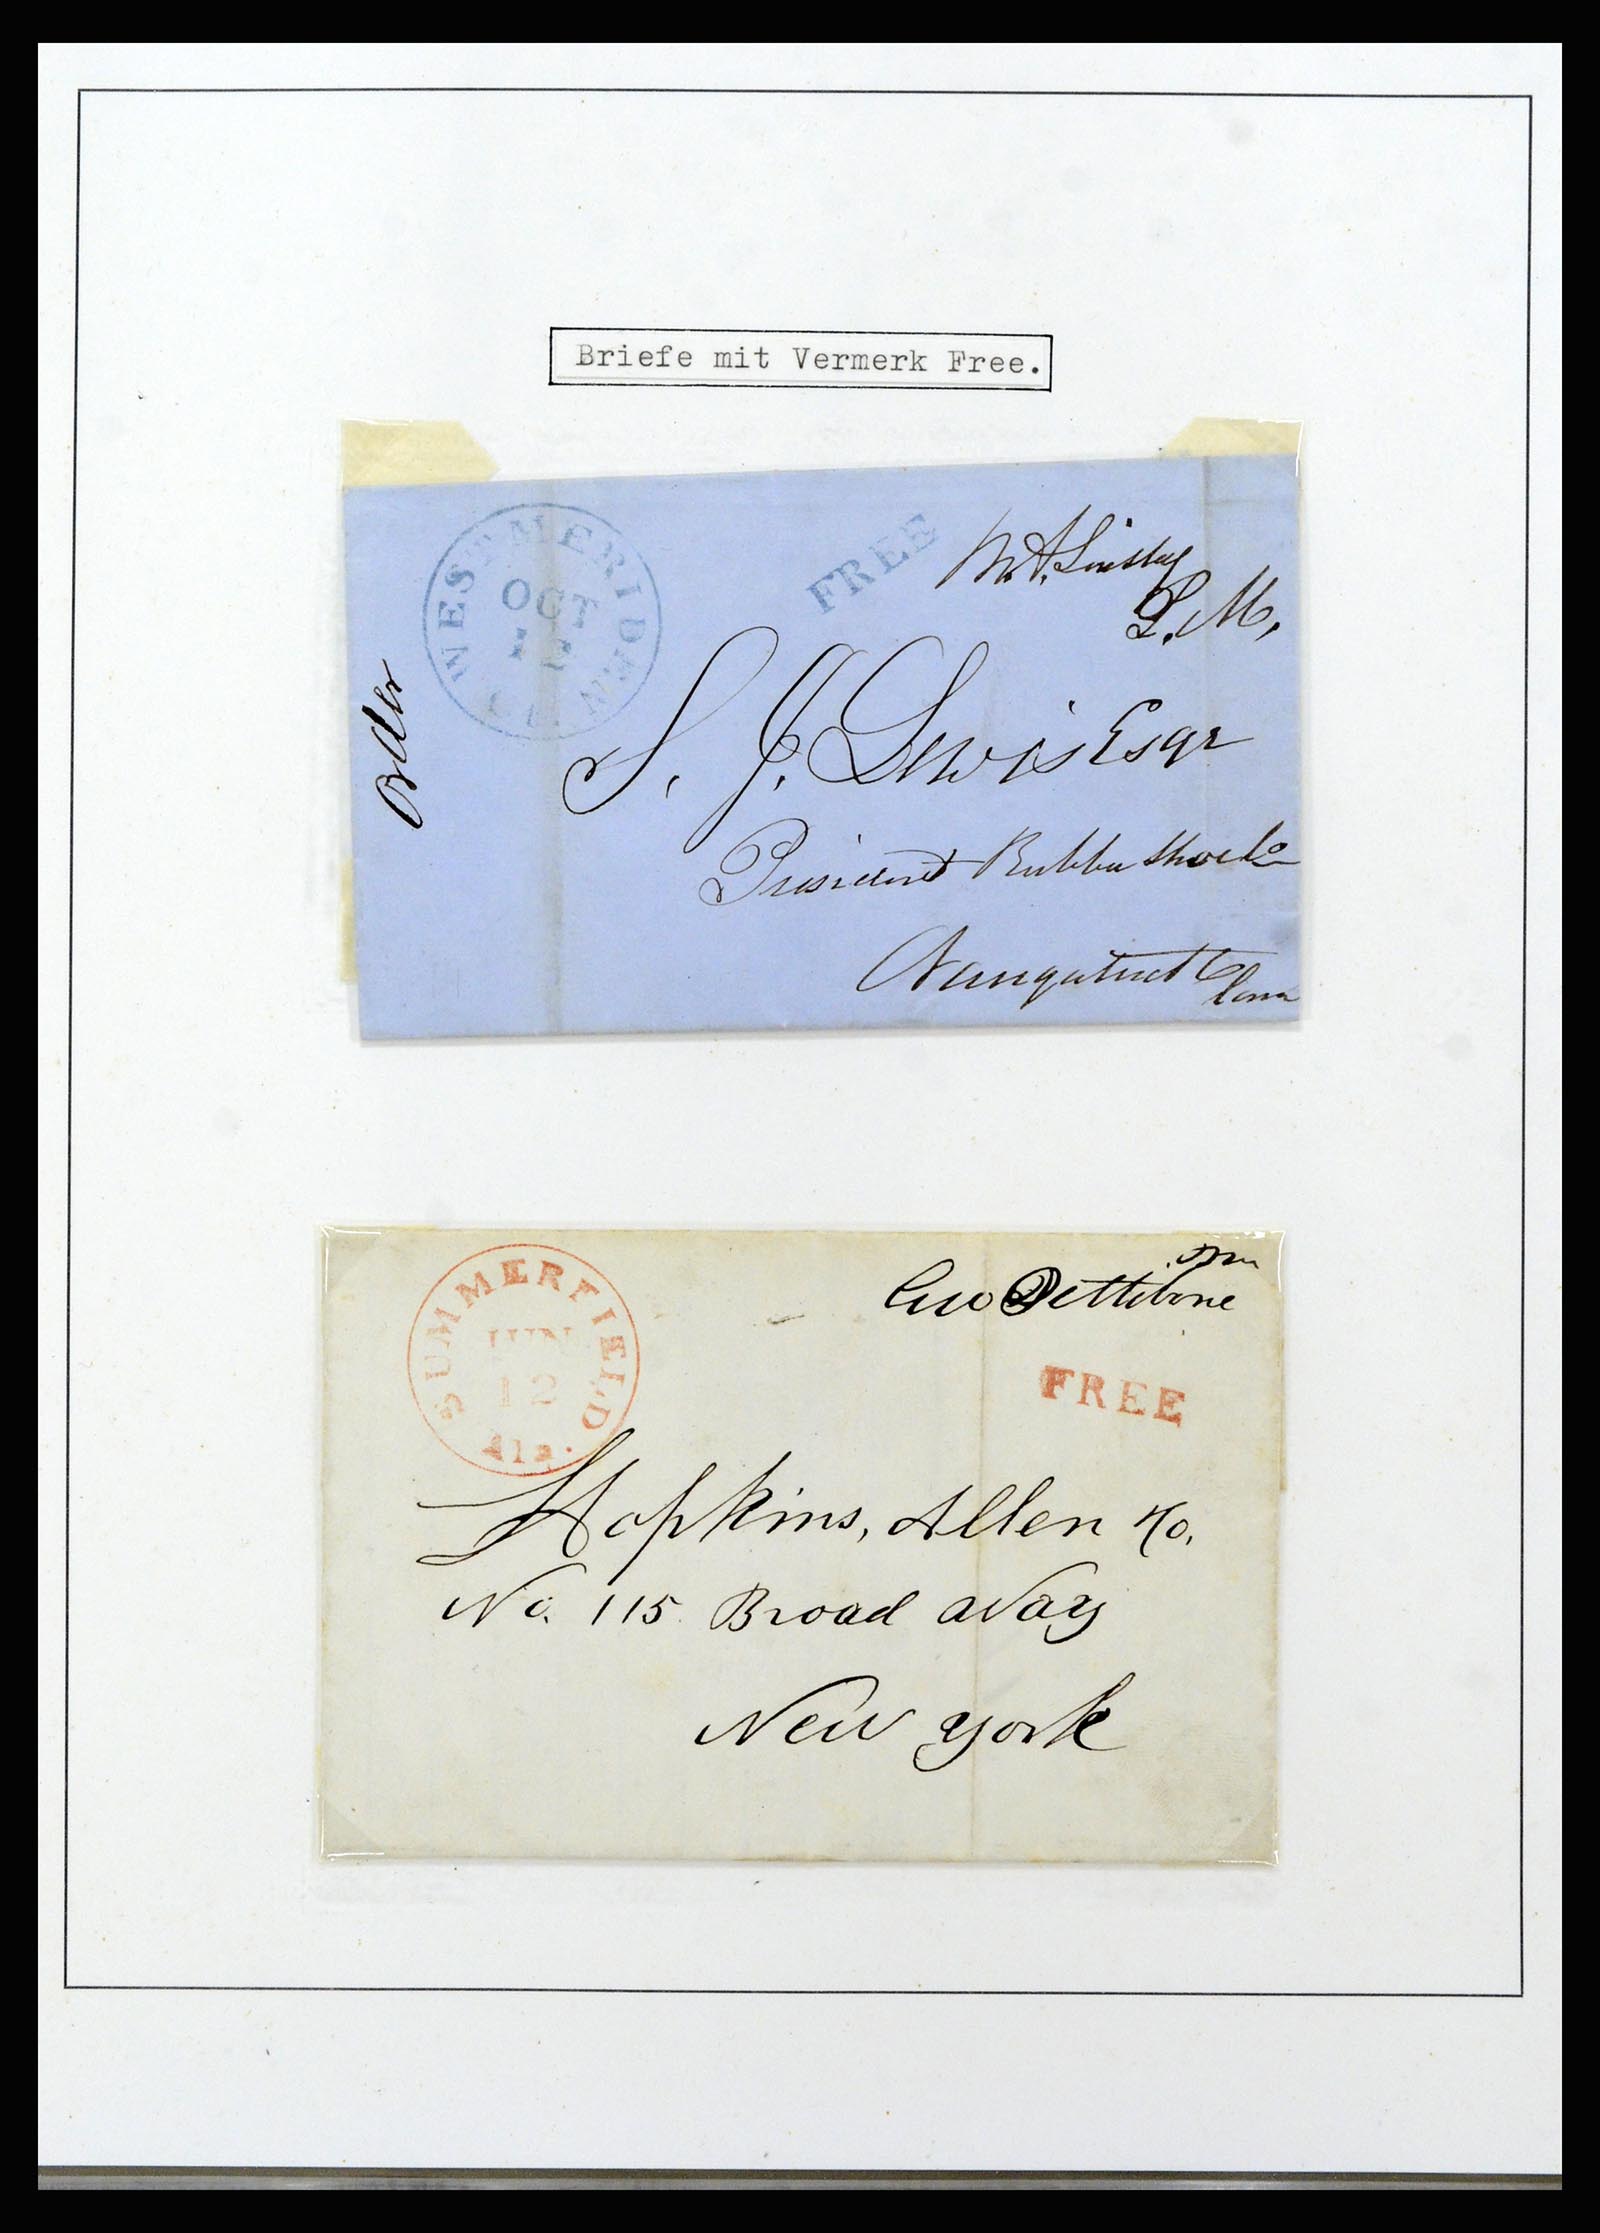 Briefe mit Vermerk Free.
WEST MERIDEN
OCT
FREE
P.M.
S. J. Lewis Esqr
President Rubber Shoe Co
Naugatuck
Conn
SUMMERFIELD
JUN
12
Ala.
Geo Pettibone
PM
FREE
Hopkins, Allen & Co.
No. 115 Broad Way
New York